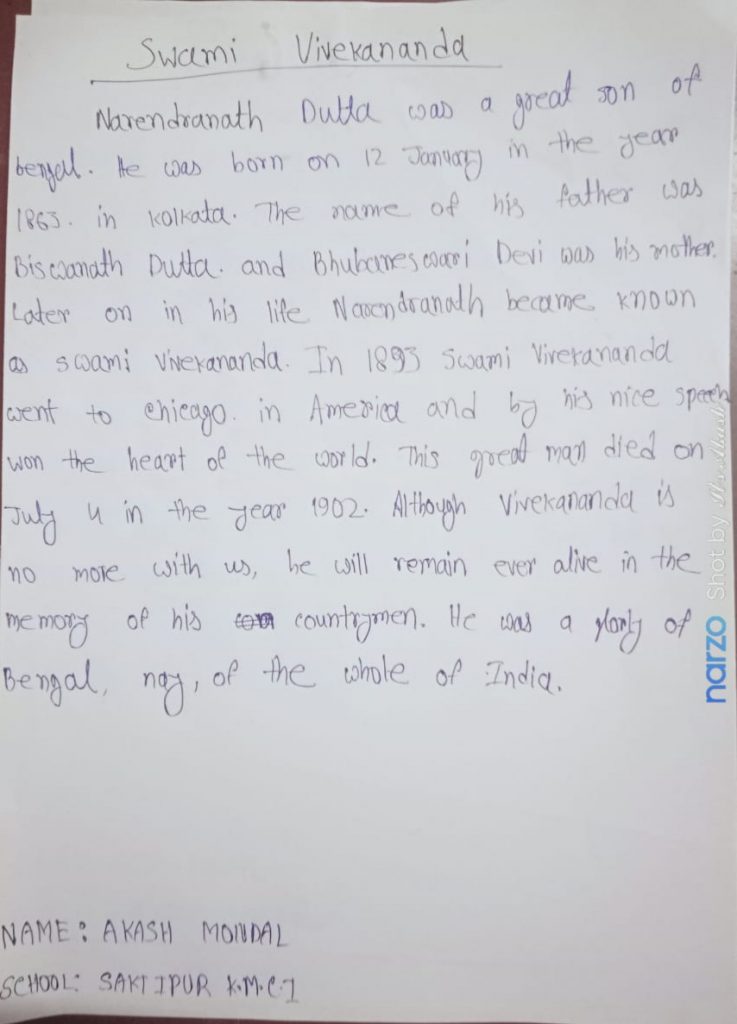 Swami Vivekananda
Narendranath Dutta was a great son of
bengal. He was born on 12 January in the year
1863. in Kolkata. The name of his father was
Biswanath Dutta. and Bhubaneswari Devi was his mother.
Later on in his life Narendranath became known
as swami Vivekananda. In 1893 Swami Vivekananda
went to chicago. in America and by his nice speech
won the heart of the world. This great man died on
July 4 in the year 1902. Although Vivekananda is
no more with us, he will remain ever alive in the
memory of his countrymen. He was a glory of
Bengal, nay, of the whole of India.
NAME: AKASH MONDAL
SCHOOL: SAKTIPUR K.M.C.I
narzo Shot by